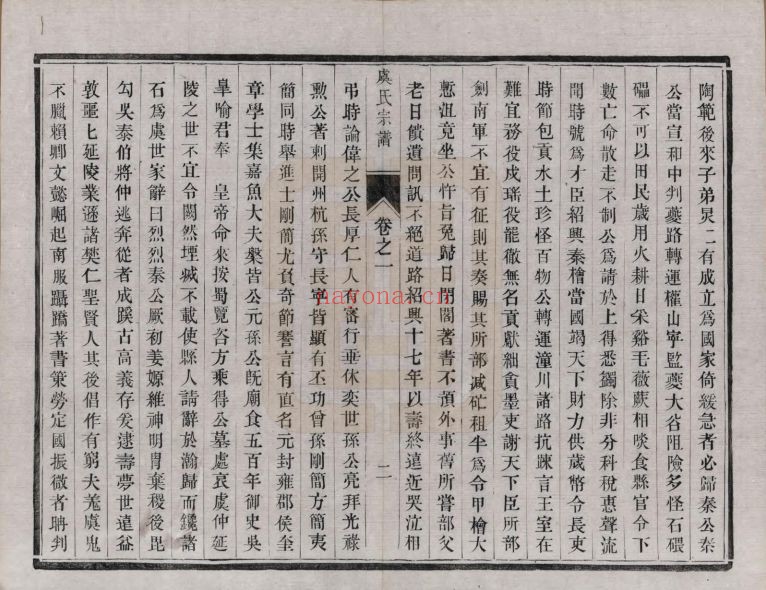 陶範後來子弟炅二有成立爲國家倚緩急者必歸秦公秦
公當宣和中判夔路轉運權山寧監夔大谷阻險多怪石碨
礧不可以田民歲用火耕日采谿毛薇蕨相啖食縣官令下
數亡命散走不制公爲請於上得悉蠲除非分科稅惠聲流
聞時號爲才臣紹興秦檜當國竭天下財力供歲幣令長吏
時節包貢水土珍怪百物公轉運潼川諸路抗踈言王室在
難宜務役戍瑤役罷徹無名貢獻絀貪墨吏謝天下臣所部
劍南軍不宜有征則其奏賜其所部減茫租半爲令甲檜大
慙沮竟坐公忤旨免歸日閉閣著書不預外事舊所嘗部父
老日餽遺問訊不絕道路紹興十七年以壽終遠近哭泣相
虞氏宗譜
卷之一
二
弔時論偉之公長厚仁人有富行垂休奕世孫公亮拜光祿
勲公著刺開州杭孫守長寧皆顯有丕功曾孫剛簡方簡夷
簡同時舉進士剛簡尤負奇節謇言有直名元封雍郡侯奎
章學士集嘉魚大夫槃皆公元孫公旣廟食五百年御史吳
臯喻君奉 皇帝命來按蜀覽咨方乘得公墓處哀虞仲延
陵之世不宜令闕然堙烕不載使縣人請辭於瀚歸而鑱諸
石爲虞世家辭曰烈烈秦公厥初姜嫄維神明胄棄稷後毘
勾吳泰伯將仲逃奔從者成蹊古高義存爰逮壽夢世遠益
敦噩匕延陵業遜諸樊仁聖賢人其後倡作有窮夫羗虞鬼
不臘賴卿文懿崛起南服躡蹻著書策勞定國振微者聃判